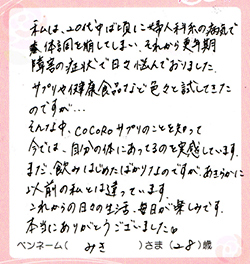 私は、20代半ば頃に婦人科系の病気で
体調を崩してしまい、それから更年期
障害の症状で日々悩んでおりました。
サプリや健康食品など色々と試してきた
のですが…
そんな中、cocoroサプリのことを知って
今では、自分の体にあってるのを実感しています。
まだ、飲みはじめたばかりなのですが、あきらかに
以前の私とは違っています。
これからの日々の生活、毎日が楽しみです。
本当にありがとうございました。
ペンネーム( みき )さま(28)歳